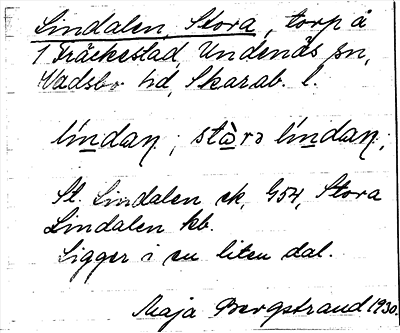 Lindalen, Stora, torp å
1 Träckestad, Undenäs sn,
Vadsbo hd, Skarab. l.
líndaņ; stὰrə líndaņ;
St. Lindalen ek, G54, Stora
Lindalen kb.
Ligger i en liten dal.
Maja Bergstrand 1930.